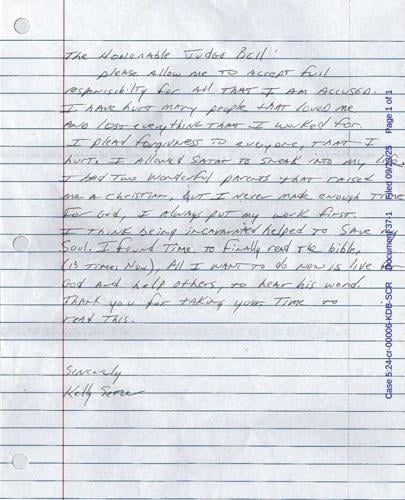 The Honorable Judge Bell:
please allow me to accept full
responsibility for all that I am accused.
I have hurt many people that loved me
and lost everything that I worked for.
I plead forgivness to everyone, that I
hurt. I allowed Satan to sneak into my life.
I had two wonderful parents that raised
me a Christian, but I never made enough time
for God, I always put my work first.
I think being incarcerated helped to save my
soul. I found time to finally read the bible,
(13 times now), All I want to do now is live for
God and help others, to hear his word.
Thank you for taking your time to
read this.
Sincerely
Kelly
Case 5:24-cr-00006-KDB-SCR Document 37-1 Filed 09/29/25 Page 1 of 1